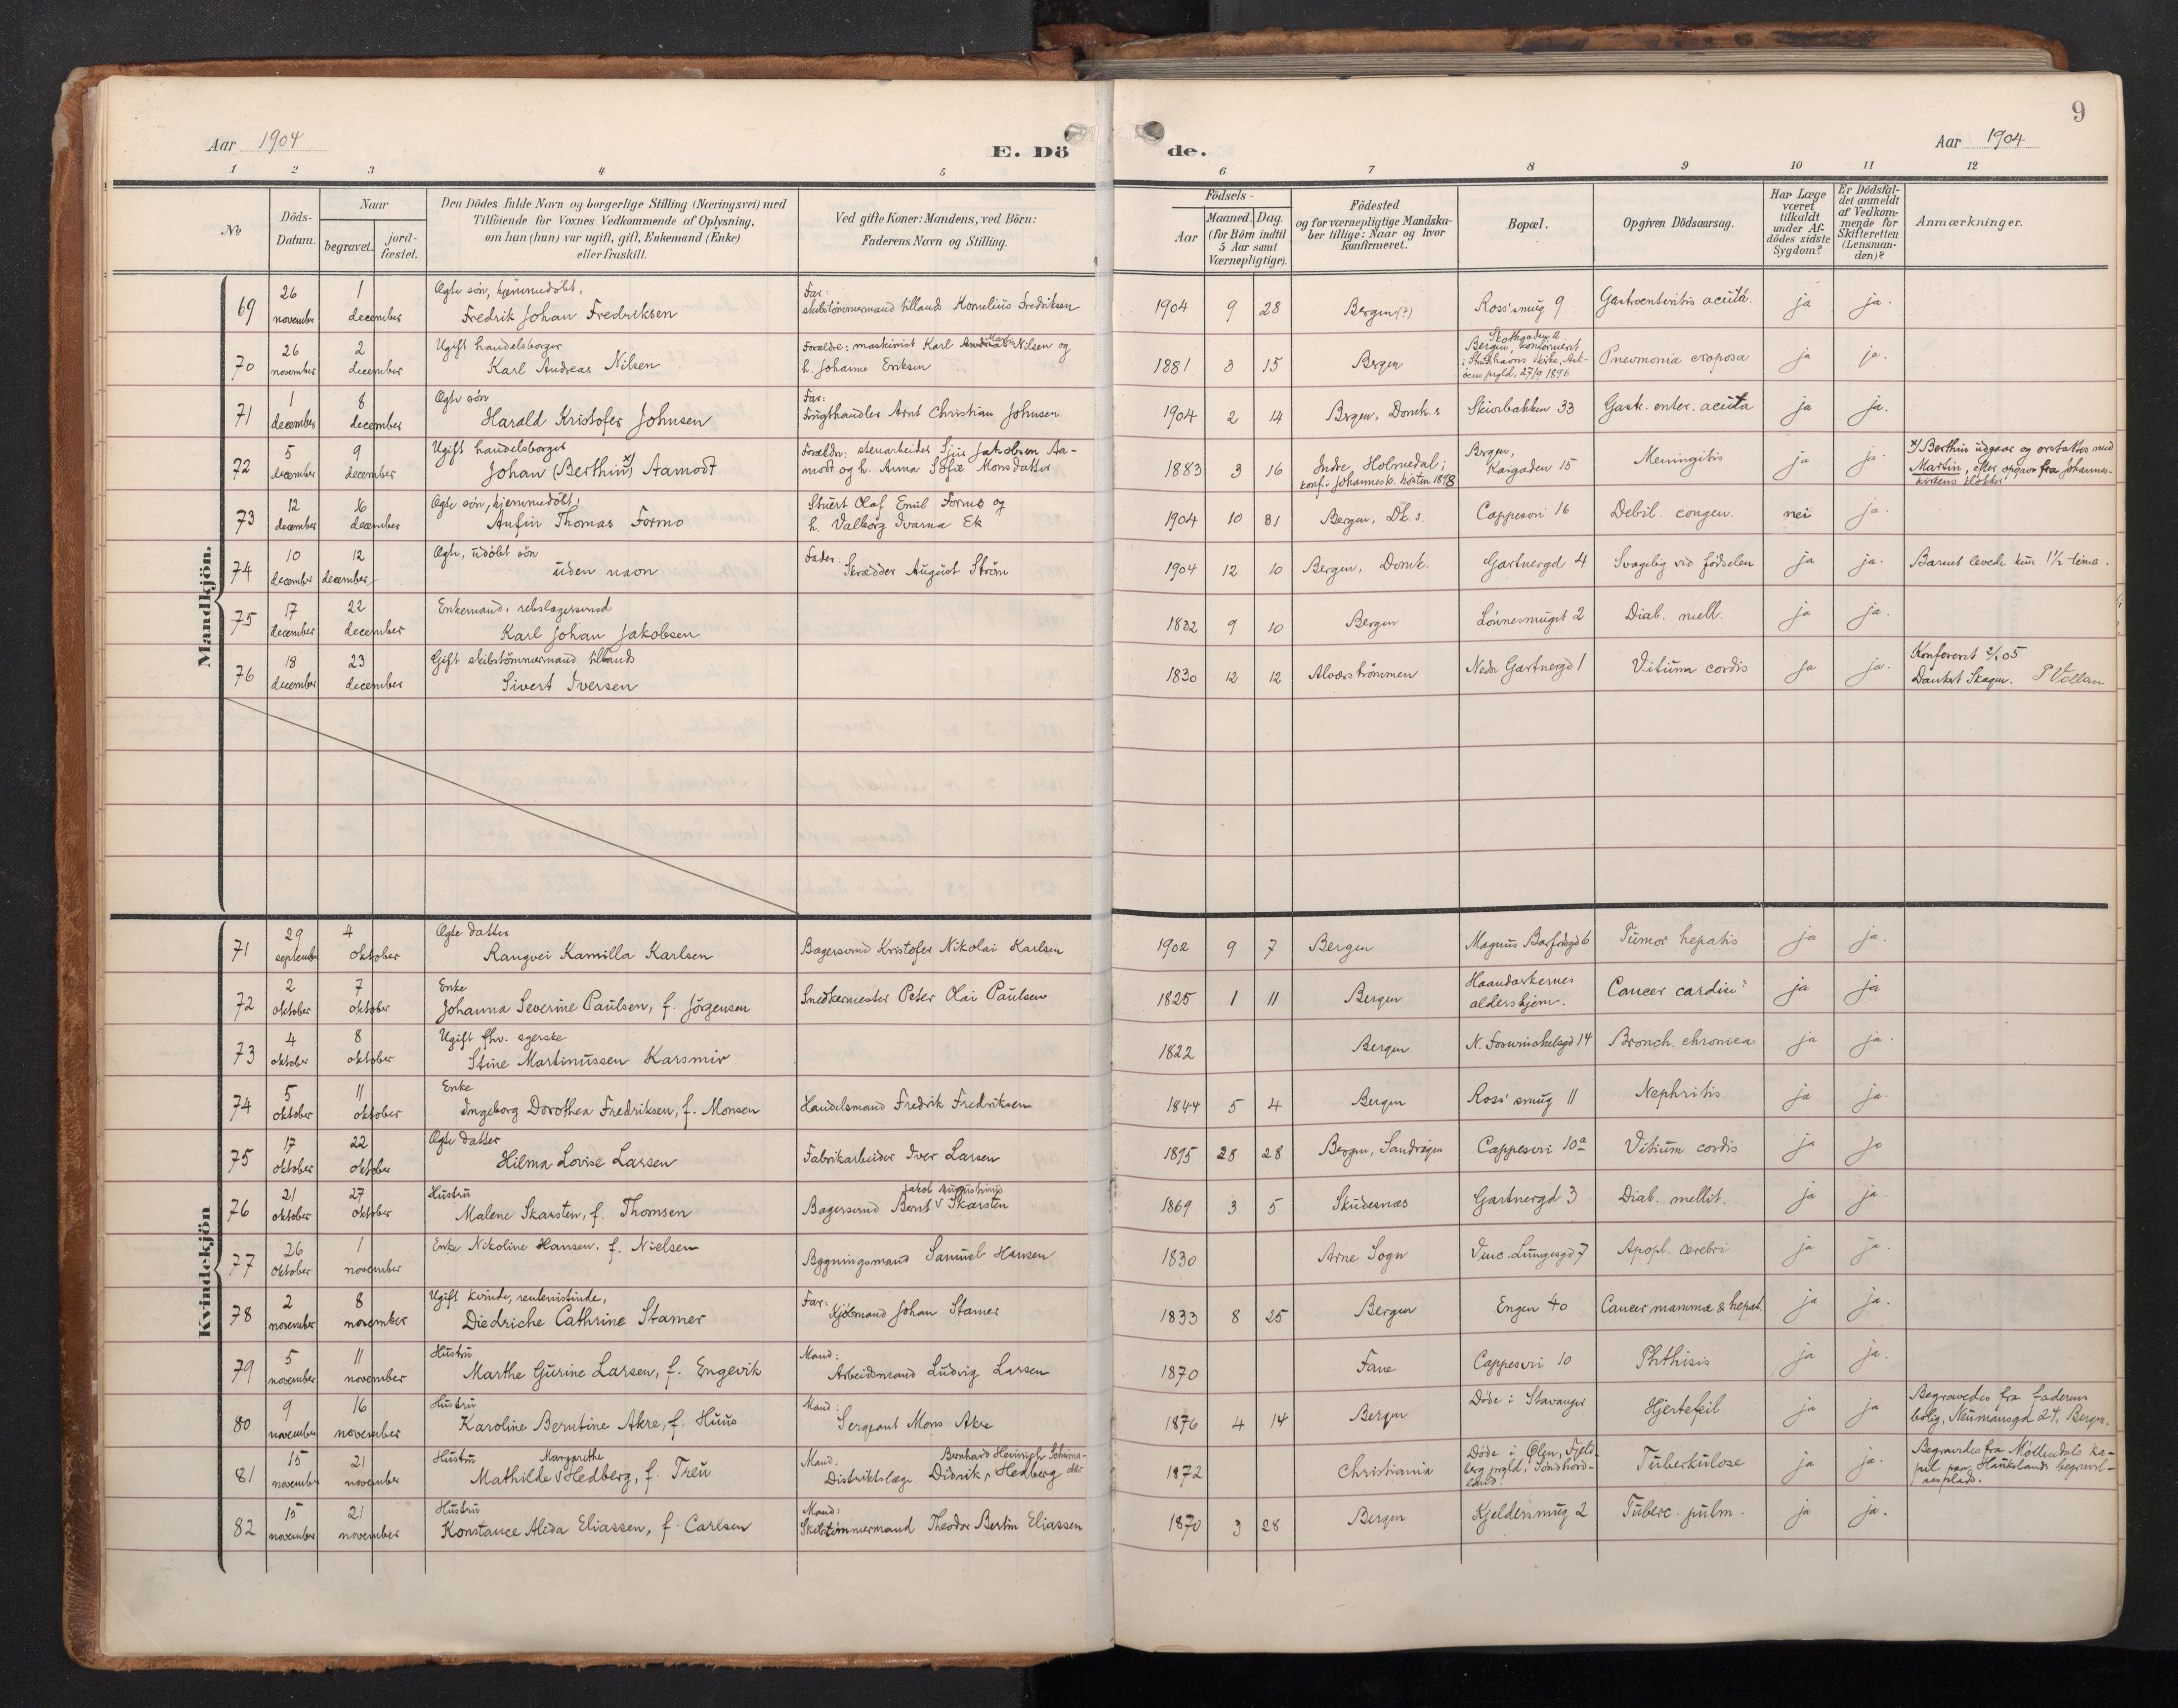 9
Aar 1904
E. Dö
de.
Aar 1904
1 2 3 4 5 6 7 8 9 10 11 12
No
Döds-
Datum.
Naar
begravet.
jord-
fæstet.
Den Dödes fulde Navn og borgerlige Stilling (Næringsvei) med
Tilföiende for Voxnes Vedkommende af Oplysning,
om han (hun) var ugift, gift, Enkemand (Enke)
eller fraskilt.
Ved gifte Koner: Mandens, ved Börn:
Faderens Navn og Stilling.
Födsels-
Aar
Maaned. Dag.
(for Börn indtil
5 Aar samt
Værnepligtige).
Födested
og for værnepligtige Mandska-
ber tillige: Naar og hvor
konfirmeret.
Bopæl.
Opgiven Dödsaarsag.
Har Læge
været
tilkaldt
under Af-
dödes sidste
Sygdom?
Er Dödsfal-
det anmeldt
af Vedkom-
mende for
Skifteretten
(Lensman-
den)?
Anmærkninger.
Mandkjön.
69 26 november 1 december
Ægte sön, hjemmedöbt,
Fredrik Johan Fredriksen
Far:
skibstömmermand tillands Kornelius Fredriksen
1904 9 28 Bergen (?) Ross'smug 9 Gastroenteritis acuta. ja ja.
70 26 november 2 december
Ugift handelsborger
Karl Andreas Nilsen
Forældre: maskinist Karl Martin Nilsen og
h. Johanne Eriksen
1881 3 15 Bergen
Skottegaden 2
Bergen, konfirmeret
i Storhavns kirke, Ask-
öens prgld, 27/9 1896
Pneumonia croposa ja ja.
71 1 december 8 december
Ægte sön
Harald Kristofer Johnsen
Far:
Frugthandler Arnt Christian Johnsen
1904 2 14 Bergen, Domk.s Skivebakken 33 Gastr. enter. acuta ja ja.
72 5 december 9 december
Ugift handelsborger
Johan (Berthin x)) Aamodt
Forældre: stenarbeider Sjur Jakobsen Aa-
modt og h. Anna Sofie Monsdatter
1883 3 16
Indre Holmedal;
konf. i Johannesk. hösten 1898
Bergen,
Kaigaden 15
Meningitis ja ja.
x) Berthin udgaar og erstattes med
Martin, efter opgave fra Johannes-
kirkens klokker
73 12 december 16 december
Ægte sön, hjemmedöbt,
Anfin Thomas Formo
Stuert Olaf Emil Formo og
h. Valborg Ivarna Ek
1904 10 31 Bergen, Dk.s. Cappesvei 16 Debil. congen. nei ja.
74 10 december 12 december
Ægte, udöbt sön
uden navn
Fader:
Skrædder August Ström
1904 12 10 Bergen, Domk. Gartnergd 4 Svagelig ved födselen ja ja. Barnet levede kun 1 1/2 time.
75 17 december 22 december
Enkemand, rebslagersvend
Karl Johan Jakobsen
1832 9 10 Bergen Lönnesmuget 2 Diab. mell. ja ja.
76 18 december 23 december
Gift skibstömmermand tillands
Sivert Iversen
1830 12 12 Alværströmmen Nedr Gartnergd 1 Vitium cordis ja ja.
Konfereret 2/1 05
Dankert Skagen. P Vollan
Kvindekjön
71 29 september 4 oktober
Ægte datter
Rangvei Kamilla Karlsen
Bagersvend Kristofer Nikolai Karlsen
1902 9 7 Bergen Magnus Barfodsgd 6 Tumor hepatis ja ja.
72 2 oktober 7 oktober
Enke
Johanna Severine Paulsen, f. Jörgensen
Snedkermester Peter Olai Paulsen
1825 1 11 Bergen
Haandværkernes
aldershjem.
Cancer cardiæ? ja ja
73 4 oktober 8 oktober
Ugift fhv. sgerske
Stine Martinussen Karsmir
1822 Bergen N. Fosswinckelsgd 14 Bronch. chronica ja ja.
74 5 oktober 11 oktober
Enke
Ingeborg Dorothea Fredriksen, f. Monsen
Handelsmand Fredrik Fredriksen
1844 5 4 Bergen Ross' smug 11 Nephritis ja ja.
75 17 oktober 22 oktober
Ægte datter
Hilma Lovise Larsen
Fabrikarbeider Iver Larsen
1895 28 28 Bergen, Sandvigen Cappesvei 10a Vitium cordis ja ja
76 21 oktober 27 oktober
Hustru
Malene Skarsten, f. Thomsen
Jakob Augustinius
Bagersvend Bernt V Skarsten
1869 3 5 Skudesnæs Gartnergd 3 Diab. mellit. ja ja.
77 26 oktober 1 november
Enke Nikoline Hansen, f. Nielsen
Bygningsmand Samuel Hansen
1830 Arne Sogn Vinc. Lungesgd 7 Apopl. cerebri ja ja.
78 2 november 8 november
Ugift kvinde, rentenistinde,
Diedriche Cathrine Stamer
Far:
Kjöbmand Johan Stamer
1833 8 25 Bergen Engen 40 Cancer mammæ & hepat. ja ja.
79 5 november 11 november
Hustru
Marthe Gurine Larsen, f. Engevik
Mand:
Arbeidsmand Ludvig Larsen
1870 Fane Cappesvei 10 Phthisis ja ja.
80 9 november 16 november
Hustru
Karoline Berntine Akre, f. Huus
Mand:
Sergeant Mons Akre
1876 4 14 Bergen Döde i Stavanger Hjertefeil ja ja
Begravedes fra faderens
bolig, Neumansgd 24, Bergen.
81 15 november 21 november
Hustru Margrethe
Mathilde V Hedberg, f. Treu
Mand: Bernhard Heinrich Schuma-
cher
Distriktslæge Didrik V Hedberg
1872 Christiania
Döde i Ølen, Fjeld-
berg prgld, Söndhord-
land.
Tuberkulose ja ja.
Begravedes fra Möllendals ka-
pel paa Haukelands begravel-
sesplads.
82 15 november 21 november
Hustru
Konstance Alida Eliassen, f. Carlsen
Mand:
Skibstömmermand Theodor Bertin Eliassen
1870 3 28 Bergen Kjeldersmug 2 Tuberc. pulm. ja ja.